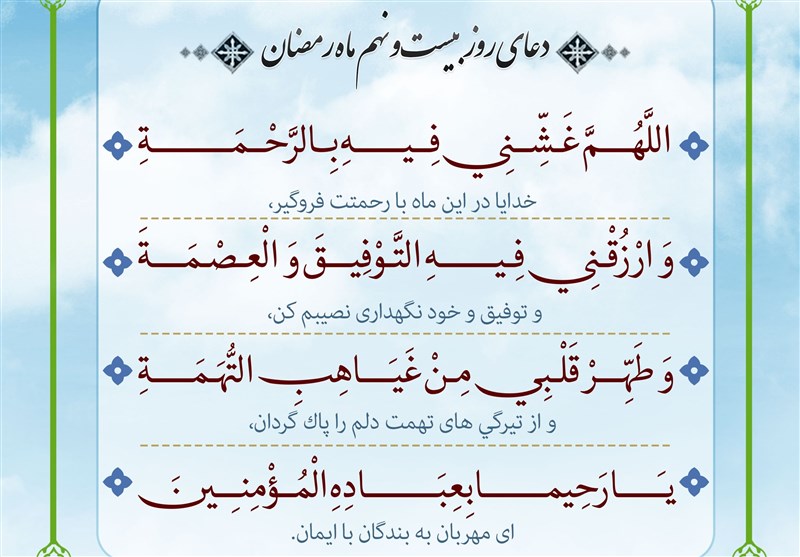 دعای روز بیست و نهم ماه رمضان
اللَّهُمَّ غَشِّنِي فِيهِ بِالرَّحْمَةِ
خدایا در این ماه با رحمتت فروگیر،
وَ ارْزُقْنِي فِيهِ التَّوْفِيقَ وَ الْعِصْمَةَ
و توفیق و خود نگهداری نصیبم کن،
وَ طَهِّرْ قَلْبِي مِنْ غَيَاهِبِ التُّهَمَةِ
و از تیرگي های تهمت دلم را پاك گردان،
يَا رَحِيما بِعِبَادِهِ الْمُؤْمِنِينَ
ای مهربان به بندگان با ایمان.